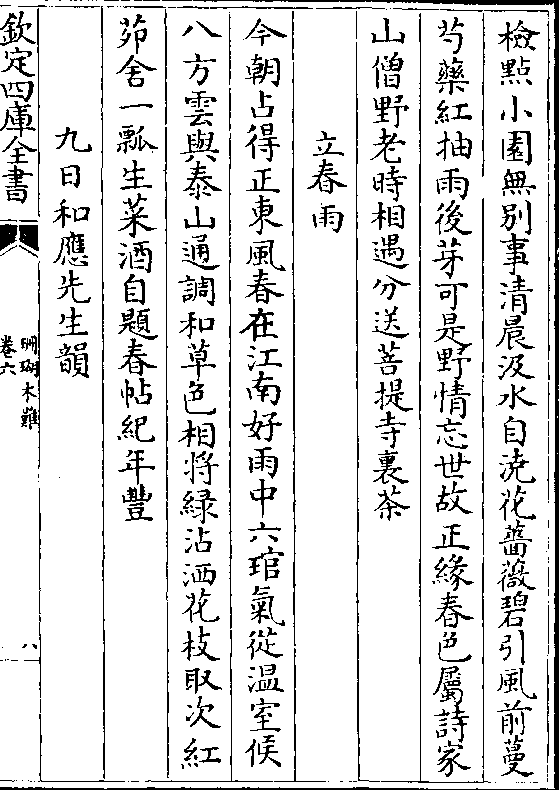 檢點小園無別事清晨汲水自澆花薔薇碧引風前蔓
芍藥紅抽雨後芽可是野情忘世故正緣春色屬詩家
山僧野老時相遇分送菩提寺裏茶
立春雨
今朝占得正東風春在江南好雨中六琯氣從溫室候
八方雲與泰山通調和草色相將緑沾洒花枝取次紅
茆舍一瓢生菜酒自題春帖紀年豐
九日和應先生韻
欽定四庫全書
珊瑚木難
卷六
八